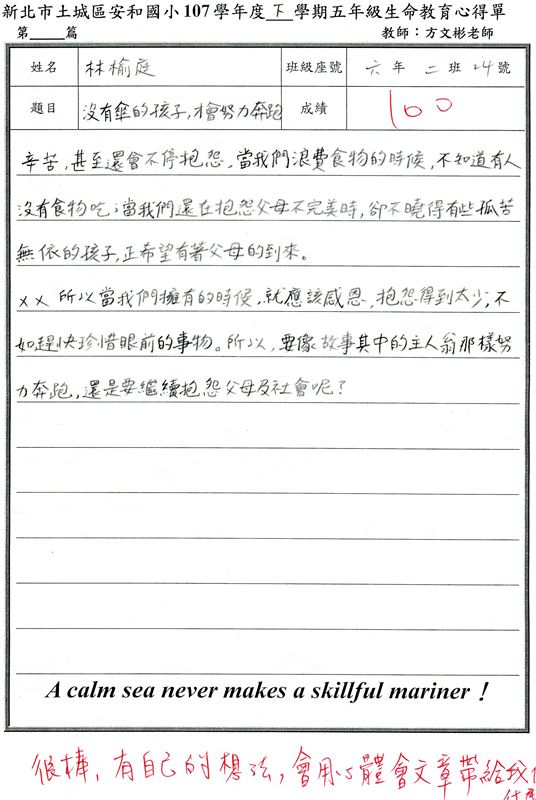 新北市土城區安和國小107學年度下學期五年級生命教育心得單
第　　篇　教師：方文彬老師
姓名　林榆庭　班級座號　六年二班24號
題目　沒有傘的孩子，才會努力奔跑　成績　100
辛苦，甚至還會不停抱怨。當我們浪費食物的時候，不知道有人
沒有食物吃；當我們還在抱怨父母不完美時，卻不曉得有些孤苦
無依的孩子，正希望有著父母的到來。
××所以當我們擁有的時候，就應該感恩，抱怨得到太少，不
如趕快珍惜眼前的事物。所以，要像故事其中的主人翁那樣努
力奔跑，還是要繼續抱怨父母及社會呢？
A calm sea never makes a skillful mariner！
很棒，有自己的想法，會用心體會文章帶給我